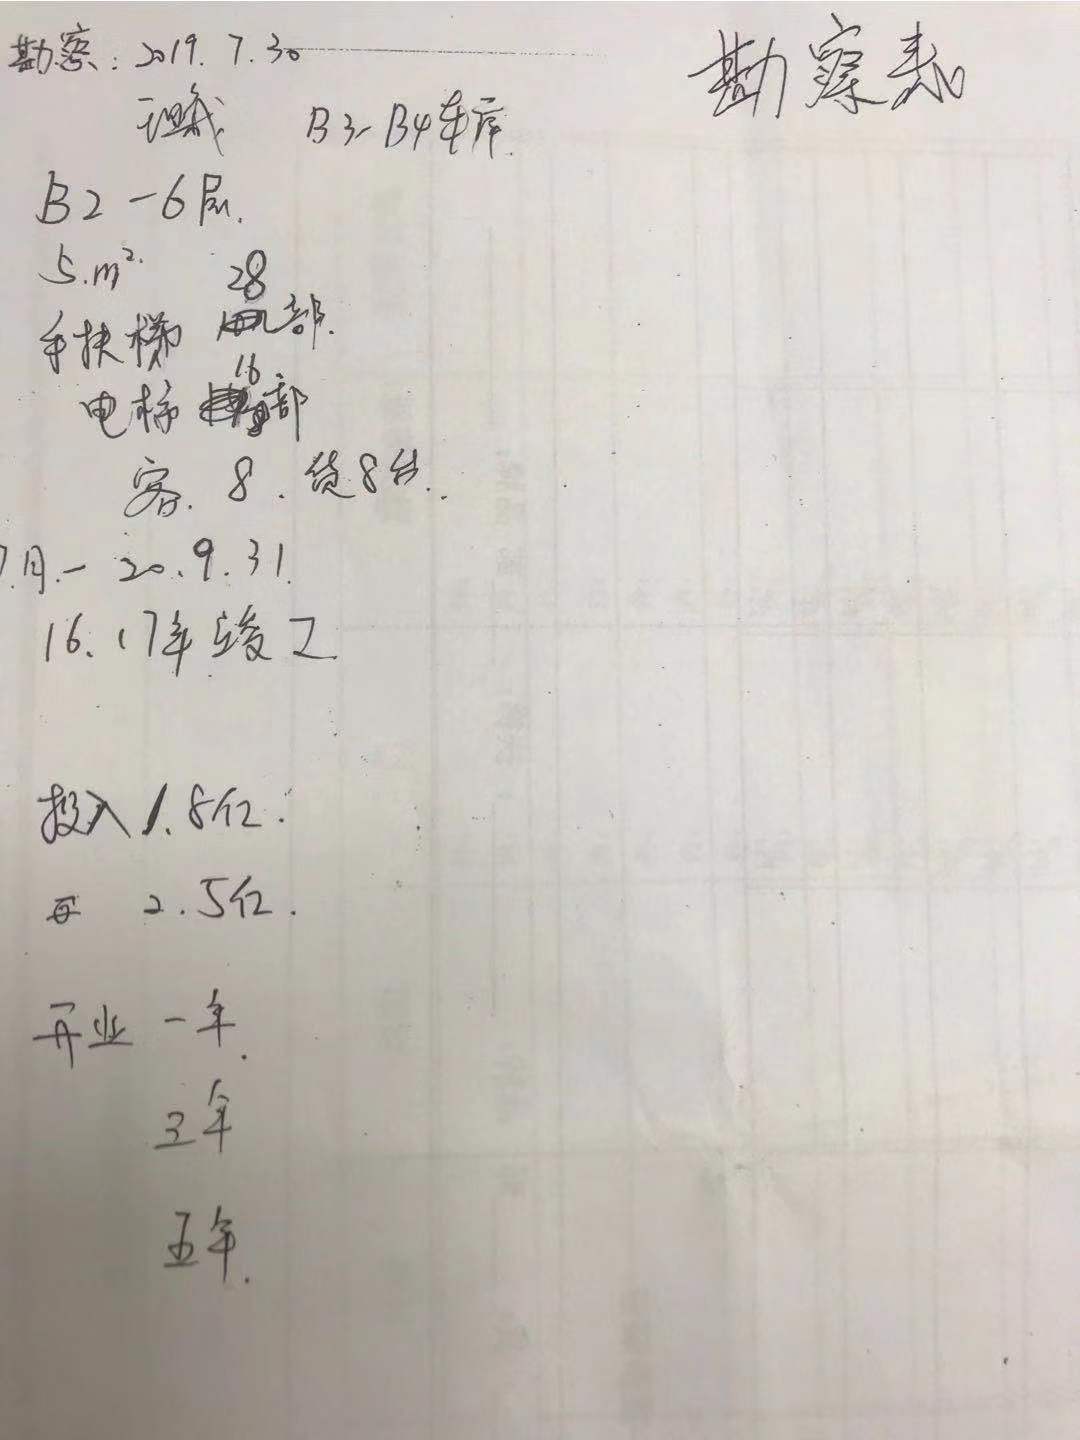 勘察表
勘察：2019.7.30
B3-B4车库.
B2-6层.
5.m².
28
手扶梯 部.
16
电梯 部
客.8.货8台..
7月.-20.9.31.
16.17年竣工
投入1.8亿.
2.5亿.
开业 一年.
三年
五年.